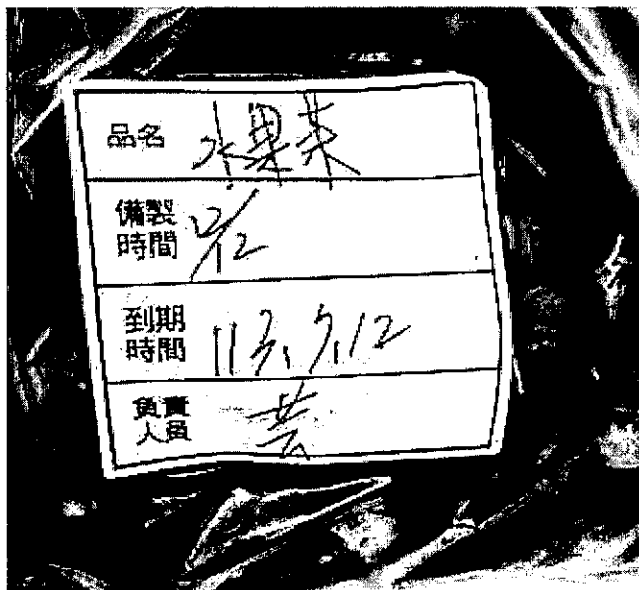 品名 水果茶
備製時間 12/12
到期時間 113.9.12
負責人員 芸